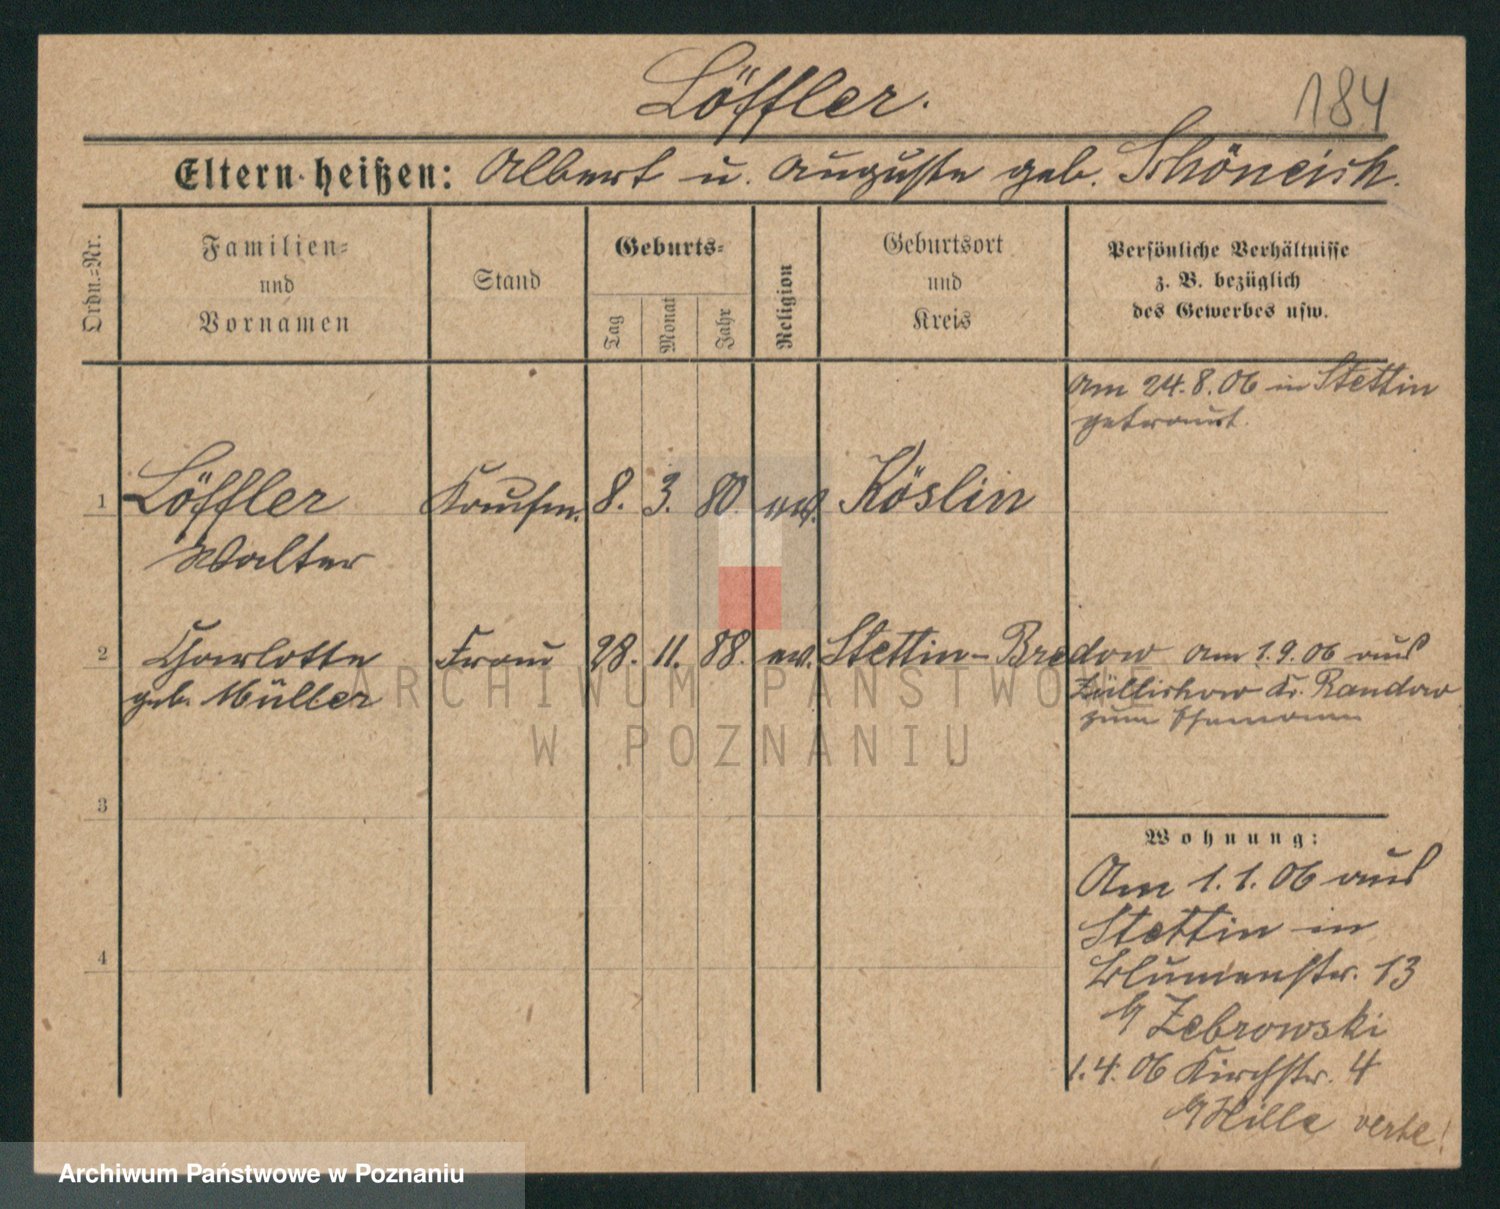 Löffler.
184
Eltern heißen: Albert u. Auguste geb. Schöneich.
Ordn.-Nr.
Familien-
und
Vornamen
Stand
Geburts-
Tag
Monat
Jahr
Religion
Geburtsort
und
Kreis
Persönliche Verhältnisse
z. B. bezüglich
des Gewerbes usw.
Am 24.8.06 in Stettin
getraut.
1 Löffler Kaufm. 8. 3. 80. ev. Köslin
Walter
2 Charlotte Frau 28. 11. 88. ev. Stettin-Bredow am 1.9.06 aus
geb. Müller Züllichow Kr. Randow
zum Ehemann
3
Wohnung:
Am 1.1.06 aus
Stettin in
Blumenstr. 13
b/ Zebrowski
4
1.4.06 Kirchstr. 4
b/ Hille
ARCHIWUM PAŃSTWOWE
W POZNANIU
Archiwum Państwowe w Poznaniu